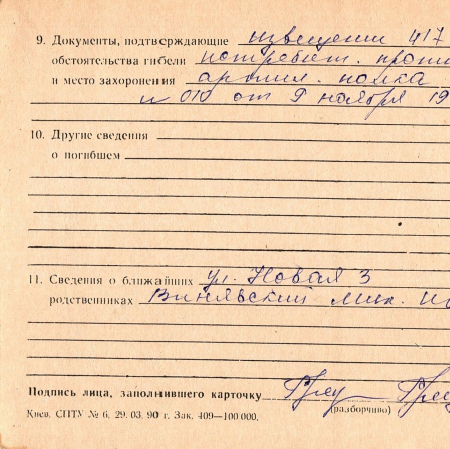 9. Документы, подтверждающие извещении 417
обстоятельства гибели истребит. проти
и место захоронения артил. полка
и 010 от 9 ноября 19
10. Другие сведения
о погибшем
11. Сведения о ближайших ул. Новая 3
родственниках Винявский Мих.
Подпись лица, заполнившего карточку
(разборчиво)
Киев. СПТУ № 6. 29. 03. 90 г. Зак. 409—100 000.